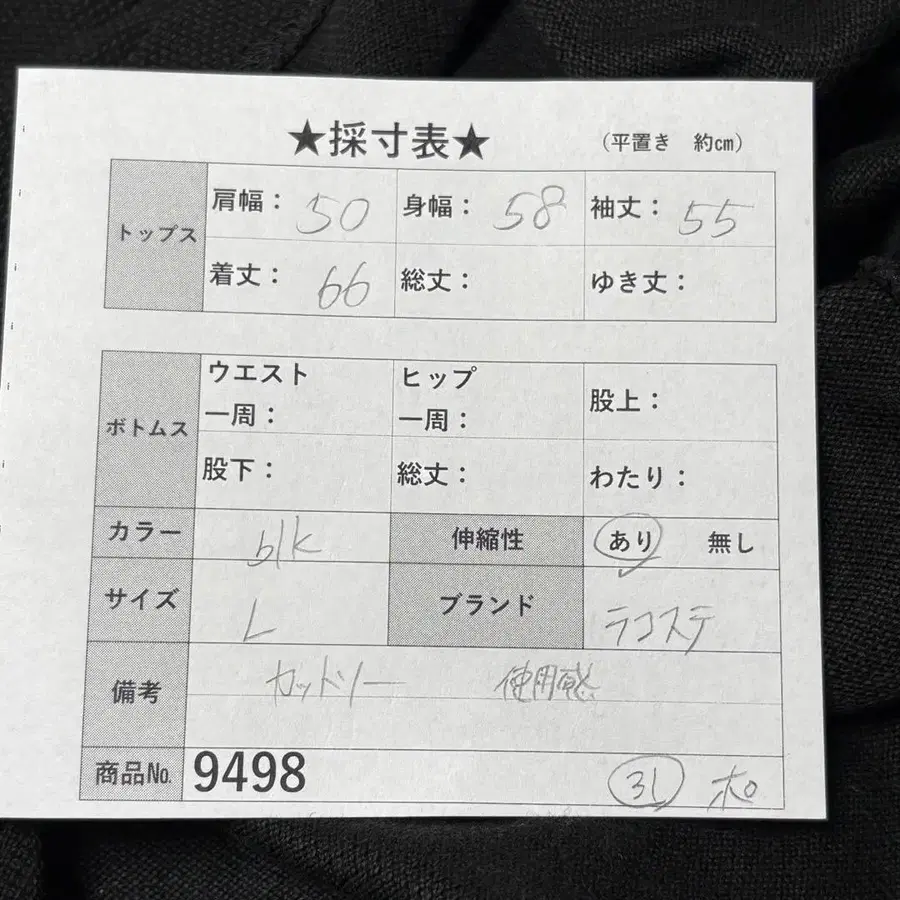 ★採寸表★ (平置き 約cm)
トップス 肩幅: 50 身幅: 58 袖丈: 55
着丈: 66 総丈: ゆき丈:
ボトムス ウエスト一周: ヒップ一周: 股上:
股下: 総丈: わたり:
カラー blk 伸縮性 あり 無し
サイズ L ブランド ラコステ
備考 カットソー 使用感
商品No. 9498